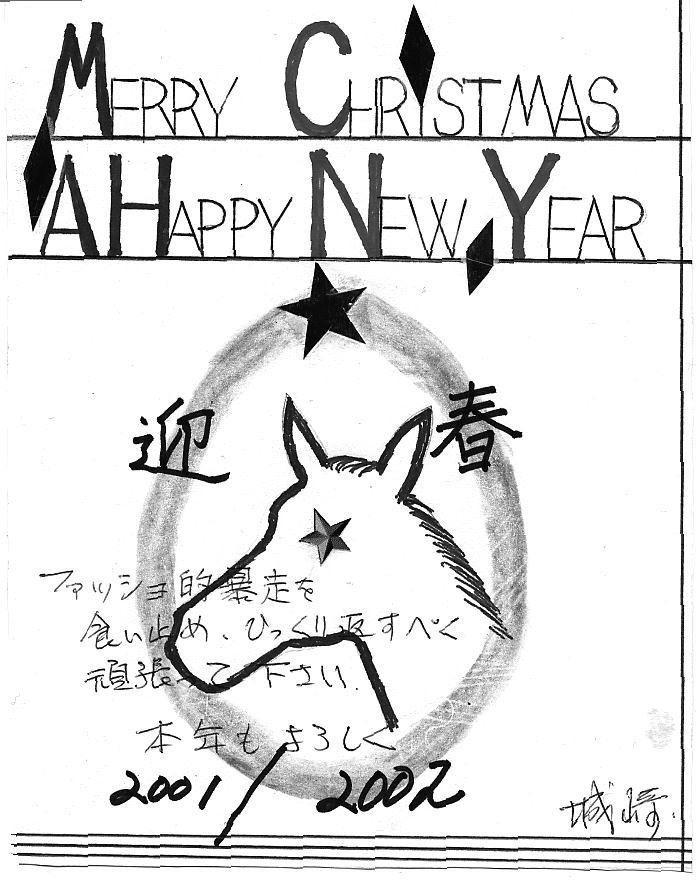 MERRY CHRISTMAS
A HAPPY NEW YEAR
迎春
ファッショ的暴走を
食い止め、ひっくり返すべく
頑張って下さい.
本年もよろしく
2001/2002
城崎